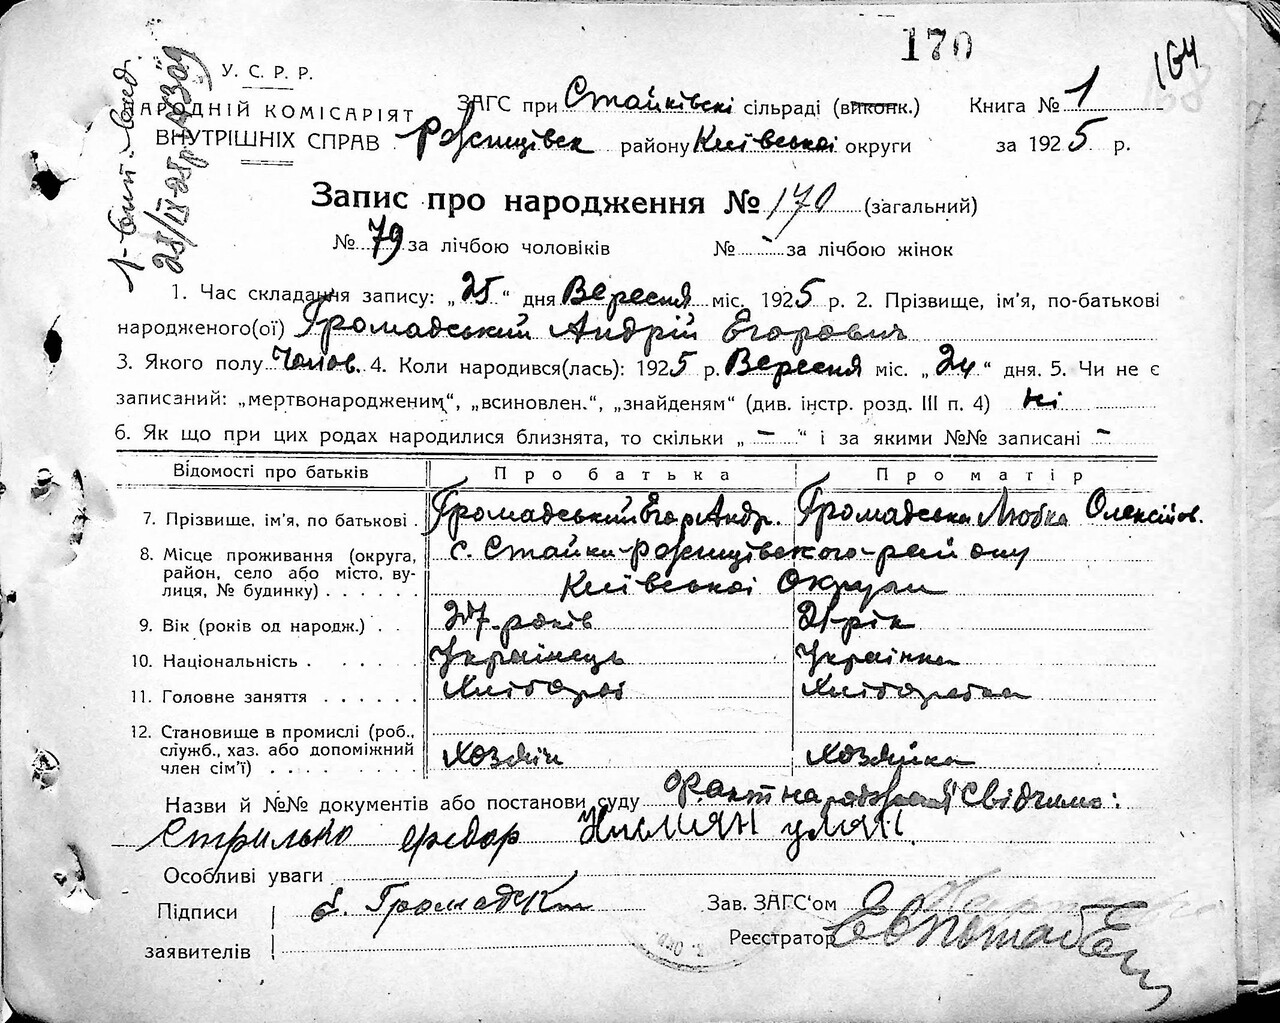 170
164
У. С. Р. Р.
НАРОДНІЙ КОМІСАРІЯТ
ВНУТРІШНІХ СПРАВ
ЗАГС при Стайківскі сільраді (виконк.) Книга № 1
Ржищівск району Київської округи за 1925 р.
Запис про народження № 170 (загальний)
№ 79 за лічбою чоловіків № - за лічбою жінок
1. Час складання запису: „25“ дня Вересня міс. 1925 р. 2. Прізвище, ім’я, по-батькові
народженого(ої) Громадський Андрій Єгорович
3. Якого полу Чолов. 4. Коли народився(лась): 1925 р. Вересня міс. „24“ дня. 5. Чи не є
записаний: „мертвонародженим“, „всиновлен.“, „знайденям“ (див. інстр. розд. III п. 4) ні
6. Як що при цих родах народилися близнята, то скільки „ — “ і за якими №№ записані —
Відомості про батьків Про батька Про матір
7. Прізвище, ім’я, по батькові . Громадський Егор Андр. Громадська Любка Олексійов.
8. Місце проживання (округа, район, село або місто, вулиця, № будинку) . . . . . .
с. Стайки-Ржищівского-району
Київської Округи
9. Вік (років од народж.) . . 27-років 21-рік
10. Національність . . . . . . Українець Українка
11. Головне заняття . . . . . . Хлібороб Хліборобка
12. Становище в промислі (роб., служб., хаз. або допоміжний член сім’ї) . . . . . . Хозяїн Хозяйка
Назви й №№ документів або постанови суду Факт народження Свідчимо:
Стрилько
Особливі уваги
Підписи заявителів Є. Громадск
Зав. ЗАГС‘ом
Реєстратор